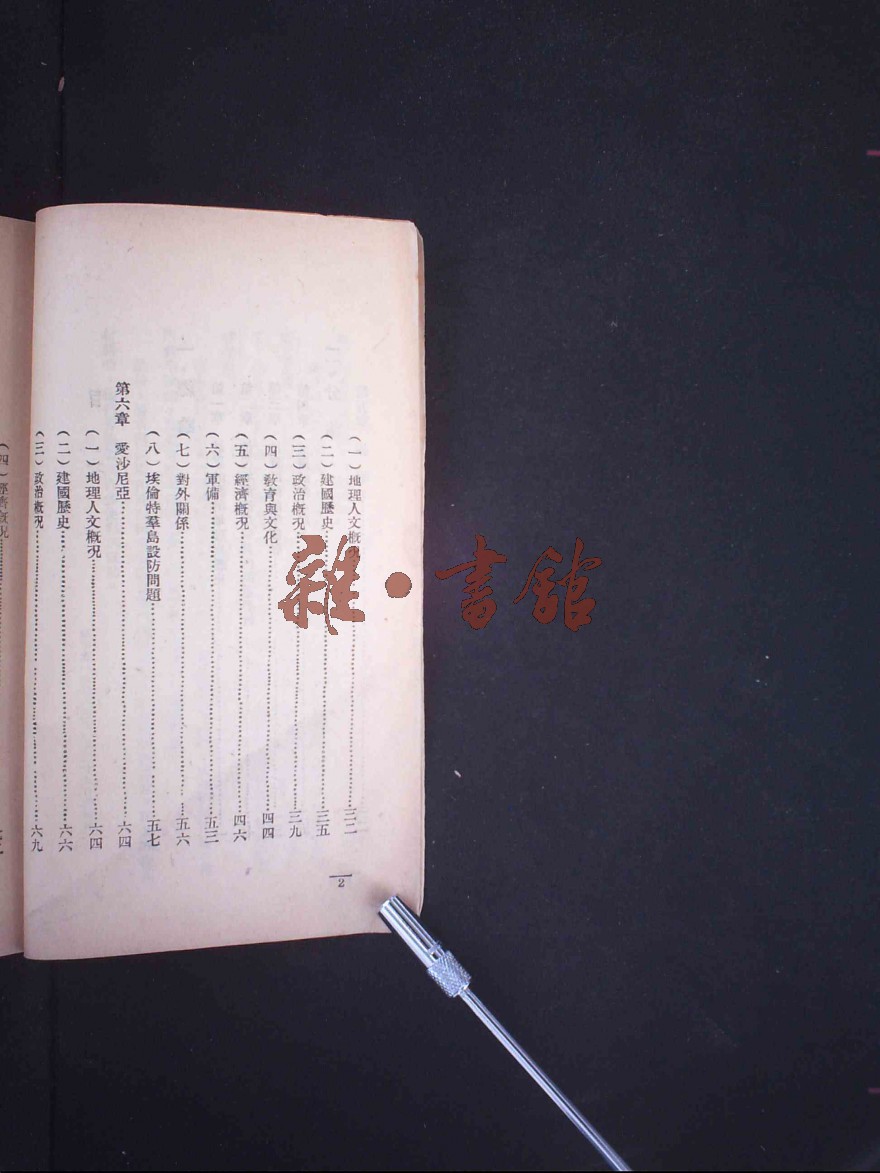 （一）地理人文概況……三二
（二）建國歷史……三五
（三）政治概況……三九
（四）教育與文化……四四
（五）經濟概況……四六
（六）軍備……五三
（七）對外關係……五六
（八）埃倫特羣島設防問題……五七
第六章　愛沙尼亞……六四
（一）地理人文概況……六四
（二）建國歷史……六六
（三）政治概況……六九
2
（四）經濟概況
雜·書館